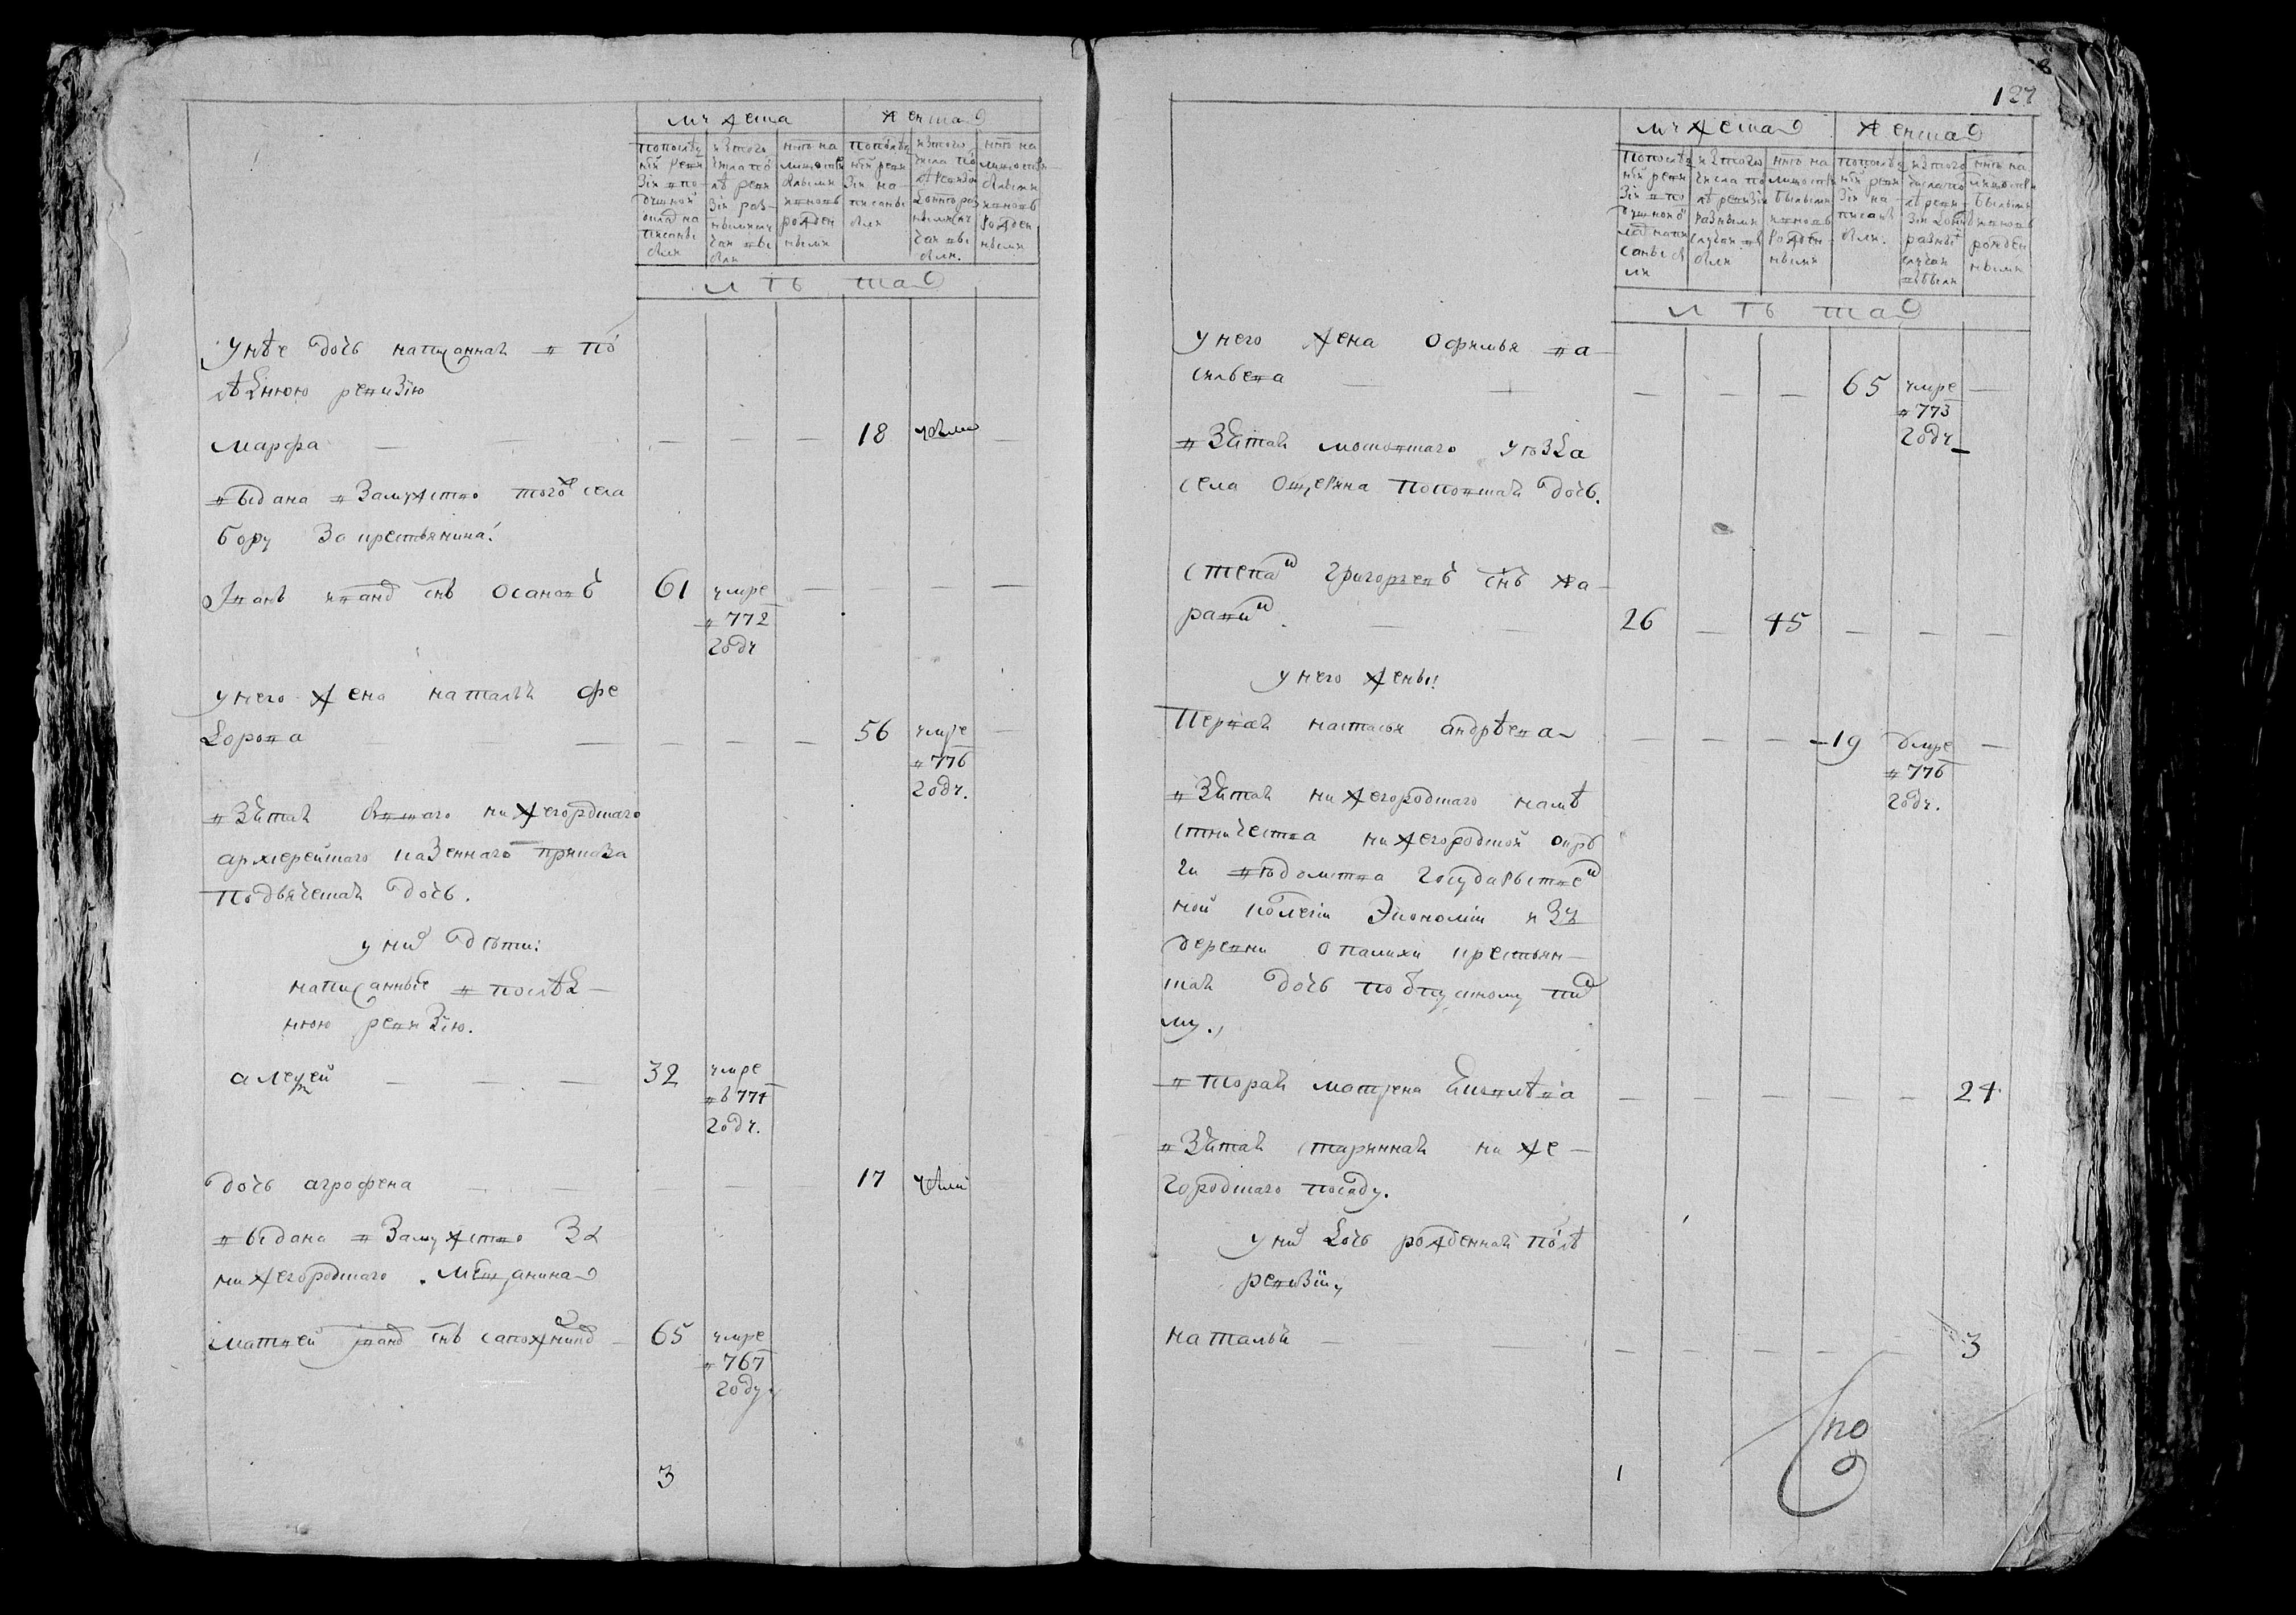 мужеска
женска
по последней ревизіи в подушной оклад написаны были
изтого числа после ревизіи разными случаи выбыли
ныне налицо с прибылыми и вновь рожденными
по последней ревизіи написаны были
изтого числа после ревизіи разными выбыли
ныне налицо с прибылыми и вновь рожденными
лѣта
у нѣе дочь написанная в по
лѣднюю ревизію
марфа — — — 18
выдана взамужство того ж села
бору за крестьянина.
Іванъ иванов снъ осановъ 61 умре
в 772
году
у него жена наталья фе
дорова — — — 56 умре
в 776
году.
взятая бывшаго нижегородцкаго
архиерейскаго казенного приказа
подьяческая дочь.
у них дѣти:
написанные в послѣд
нюю ревизію.
алексей — — — 32 умре
въ 774
году.
дочь агрофена — — — 17
выдана взамужство за
нижегородцкаго мещанина
матвей иванов снъ сапожников 65 умре
в 767
году
3
127
мужеска
женска
по последней ревизіи в подушной оклад написаны были
изтого числа после ревизіи разными случаи выбыли
ныне налицо с прибылыми и вновь рожденными
по последней ревизіи написаны были.
изтого числа после ревизіи разный случаи выбыли
ныне налицо с прибылыми и вновь рожденными
лѣта
у него жена офимья ва
сильева — — — — — 65 умре —
в 773
году
взятая уѣзда
села поповская дочь.
степан григорьевъ снъ жа
равин. — — 26 — 45 — — —
у него жены:
первая настасья андрѣева — — — 19 умре —
в 776
году.
взятая нижегородцкаго намѣ
стничества нижегородской окру
ги вѣдомства государственн
ной колегіи экономіи изъ
деревни опалихи крестьян
ская дочь по отпускному пис
му.
вторая матрена — — — — — 24
взятая старинная ниже
городцкаго посаду.
у них дочь рожденная послѣ
ревизіи
наталья — — — — — — — 3
1
по